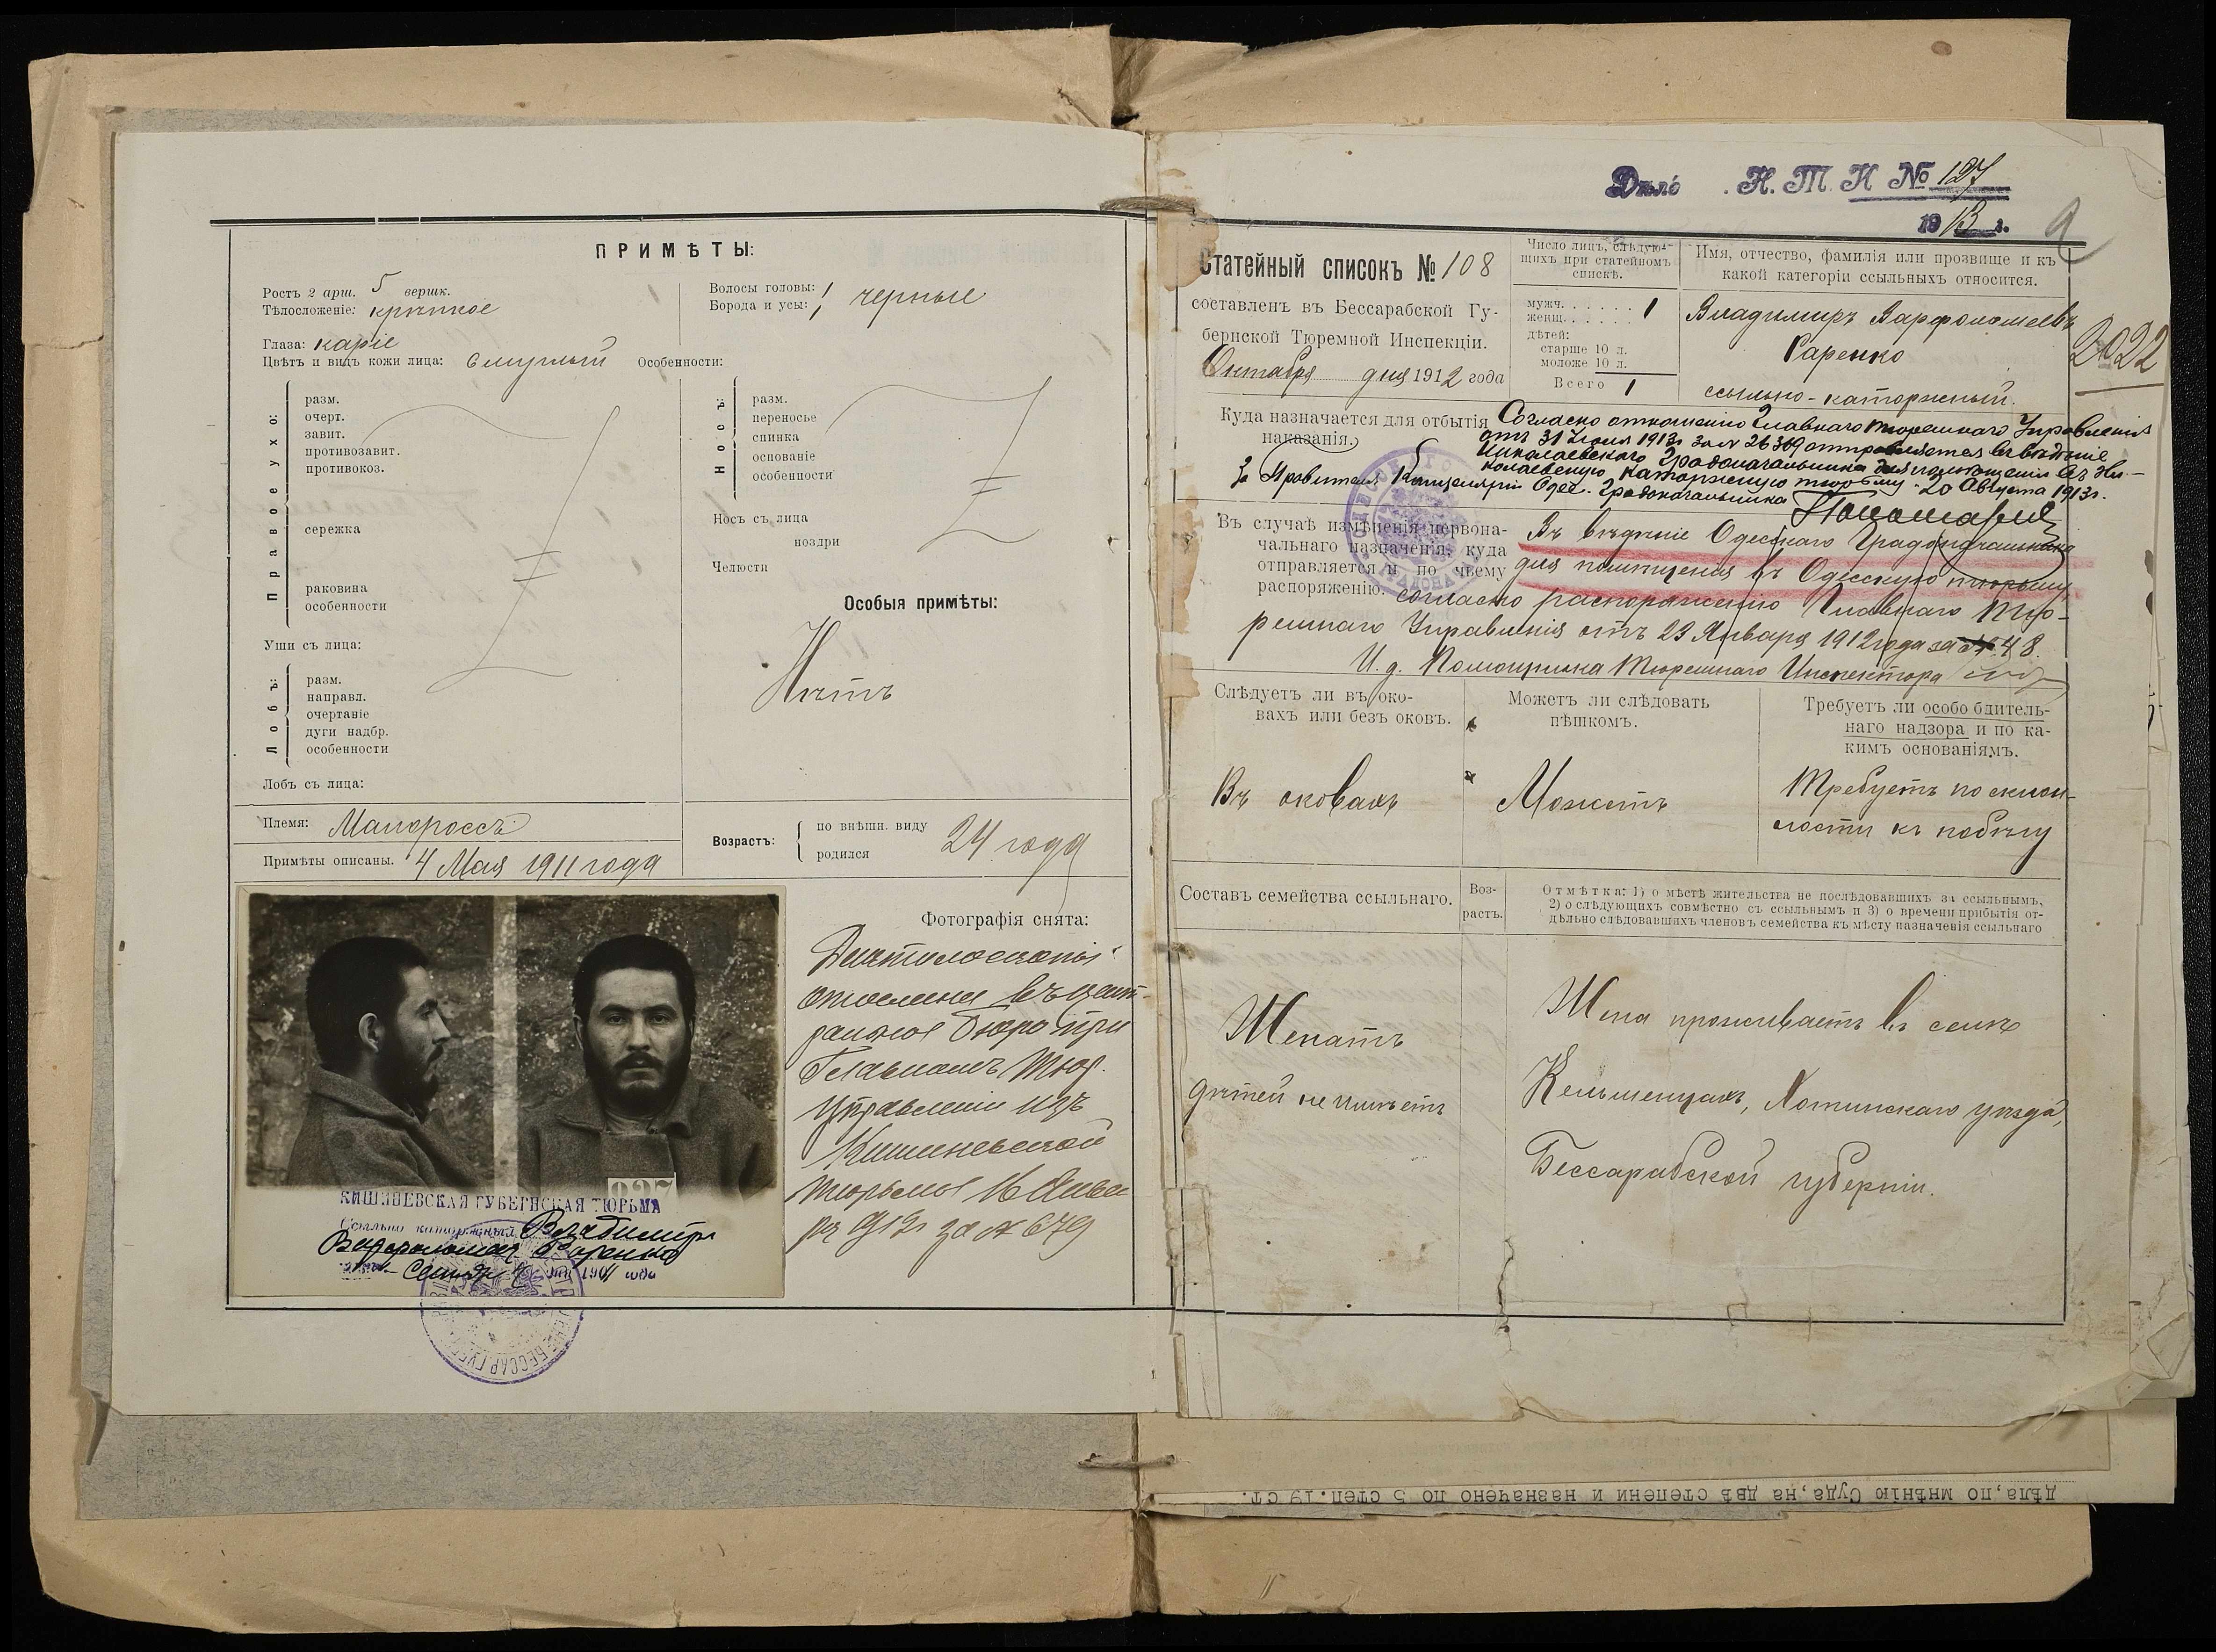 ПРИМѢТЫ:
Ростъ 2 арш. 5 вершк.
Тѣлосложеніе: крѣпкое
Глаза: каріе
Цвѣтъ и видъ кожи лица: смуглый Особенности:
Волосы головы:
Борода и усы: черные
Правое ухо:
разм.
очерт.
завит.
противозавит.
противокоз.
сережка
раковина
особенности
Уши съ лица:
Лобъ:
разм.
направл.
очертаніе
дуги надбр.
особенности
Лобъ съ лица:
Носъ:
разм.
переносье
спинка
основаніе
особенности
Носъ съ лица
ноздри
Челюсти
Особыя примѣты:
Нѣтъ
Племя: Малороссъ
Примѣты описаны. 4 Мая 1911 года
Возрастъ:
по внѣшн. виду
родился
24 года
Фотографія снята:
Дактилоскопі
отослана въ цент-
ральное бюро при
Главномъ Тюр.
Управленіи изъ
Кишиневской
тюрьмы 16 Янва
ря 912 за № 679
927
КИШИНЕВСКАЯ ГУБЕРНСКАЯ ТЮРЬМА
Ссыльно каторжный Владиміръ
Варфоломеев Гаренко
Дѣло Н.Т.И №127
1913 г.
Статейный списокъ № 108
составленъ въ Бессарабской Гу-
бернской Тюремной Инспекціи.
Октября дня 1912 года
Число лицъ, слѣдую-
щихъ при статейномъ
спискѣ.
мужч. 1
женщ.
дѣтей:
старше 10 л.
моложе 10 л.
Всего 1
Имя, отчество, фамилія или прозвище и къ
какой категоріи ссыльныхъ относится.
Владимиръ Варфоломеевъ
Гаренко
ссыльно-каторжный.
2022
Куда назначается для отбытія
наказанія.
Согласно отношенію Главнаго тюремнаго Управленія
отъ 31 Іюля 1913г за № 26369 отправляется въ вѣдѣніе
Николаевскаго Градоначальника для помѣщенія въ Ни-
колаевскую каторжную тюрьму. 20 Августа 1913г.
За Правителя Канцеляріи Одес. Градоначальника
Въ случаѣ измѣненія первона-
чальнаго назначенія, куда
отправляется и по чьему
распоряженію.
Въ вѣдѣніе Одесскаго Градоначальника
для помѣщенія въ Одесскую тюрьму,
согласно распоряженію Главнаго Тю-
ремнаго Управленія отъ 23 Января 1912 года за № 48.
И. д. Помощника Тюремнаго Инспектора
Слѣдуетъ ли въ око-
вахъ или безъ оковъ.
Въ оковахъ
Можетъ ли слѣдовать
пѣшкомъ.
Можетъ
Требуетъ ли особо бдитель-
наго надзора и по ка-
кимъ основаніямъ.
Требуетъ по склон-
ности къ побѣгу
Составъ семейства ссыльнаго.
Воз-
растъ.
Отмѣтка: 1) о мѣстѣ жительства не послѣдовавшихъ за ссыльнымъ,
2) о слѣдующихъ совмѣстно съ ссыльнымъ и 3) о времени прибытія от-
дѣльно слѣдовавшихъ членовъ семейства къ мѣсту назначенія ссыльнаго
Женатъ
дѣтей не имѣетъ
Жена проживаетъ въ селѣ
Кельменцахъ, Хотинскаго уѣзда,
Бессарабской губерніи.
дѣла, по мнѣнію Суда, на двѣ степени и назначено по 5 степ. 19 ст.